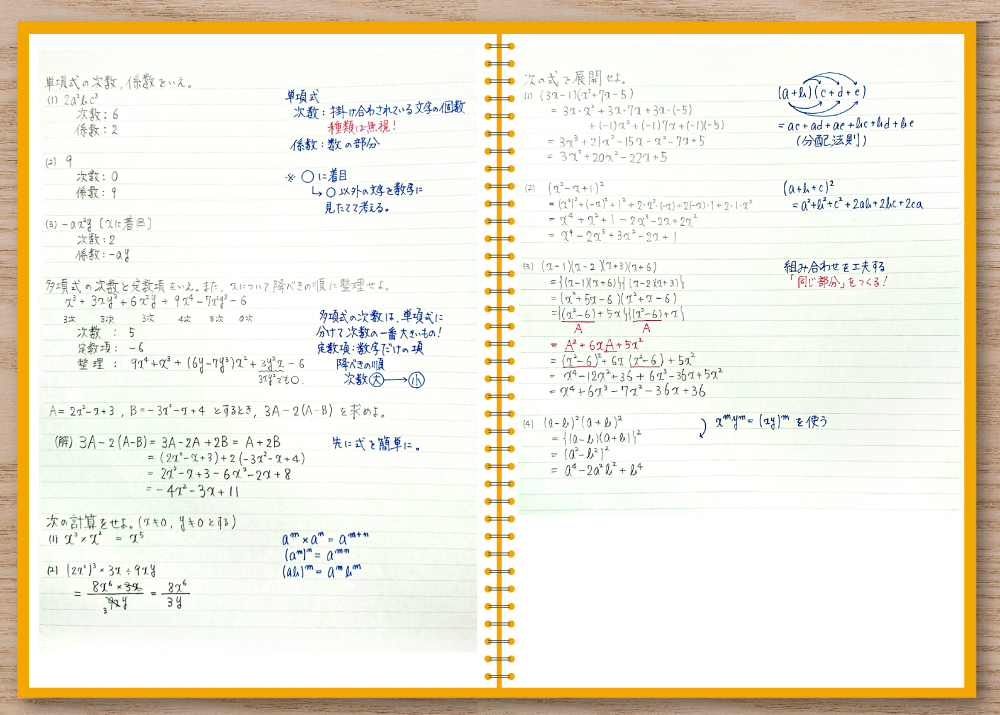 単項式の次数，係数をいえ。
(1) 2a²bc³
次数：6
係数：2
単項式
次数：掛け合わされている文字の個数
種類は無視！
係数：数の部分
(2) 9
次数：0
係数：9
※ ○に着目
↳ ○以外の文字を数字に
見たてて考える。
(3) -ax²y [xに着目]
次数：2
係数：-ay
多項式の次数と定数項をいえ。また，xについて降べきの順に整理せよ。
x³ + 3xy² + 6x²y + 9x⁴ - 7x²y³ - 6
3次 3次 3次 4次 5次 0次
次数 ： 5
定数項： -6
整理 ： 9x⁴+x³ + (6y-7y³)x² + 3y²x - 6
3xy²でも○.
多項式の次数は，単項式に
分けて次数の一番大きいもの！
定数項：数字だけの項
降べきの順
次数 大 → 小
A = 2x²-x+3 , B = -3x²-x+4 とするとき, 3A-2(A-B) を求めよ。
(解) 3A-2(A-B) = 3A-2A+2B = A+2B
= (2x²-x+3)+2(-3x²-x+4)
= 2x²-x+3-6x²-2x+8
= -4x²-3x+11
先に式を簡単に。
次の計算をせよ。(x≠0, y≠0とする)
(1) x³×x² = x⁵
(2) (2x²)³×3x÷9xy
= 8x⁶×3x / 9xy = 8x⁶ / 3y
3
aᵐ×aⁿ = aᵐ⁺ⁿ
(aᵐ)ⁿ = aᵐⁿ
(ab)ᵐ = aᵐbᵐ
次の式を展開せよ。
(1) (3x-1)(x²+7x-5)
= 3x・x²+3x・7x+3x・(-5)
+(-1)x²+(-1)7x+(-1)(-5)
= 3x³+21x²-15x-x²-7x+5
= 3x³+20x²-22x+5
(a+b)(c+d+e)
= ac+ad+ae+bc+bd+be
(分配法則)
(2) (x²-x+1)²
= (x²)²+(-x)²+1²+2・x²・(-x)+2(-x)・1+2・1・x²
= x⁴+x²+1-2x³-2x+2x²
= x⁴-2x³+3x²-2x+1
(a+b+c)²
= a²+b²+c²+2ab+2bc+2ca
(3) (x-1)(x-2)(x+3)(x+6)
= {(x-1)(x+6)}{(x-2)(x+3)}
= (x²+5x-6)(x²+x-6)
= {(x²-6)+5x}{(x²-6)+x}
A A
= A²+6xA+5x²
= (x²-6)²+6x(x²-6)+5x²
= x⁴-12x²+36+6x³-36x+5x²
= x⁴+6x³-7x²-36x+36
組み合わせを工夫する
「同じ部分」をつくる！
(4) (a-b)²(a+b)²
= {(a-b)(a+b)}²
= (a²-b²)²
= a⁴-2a²b²+b⁴
xᵐyᵐ = (xy)ᵐ を使う